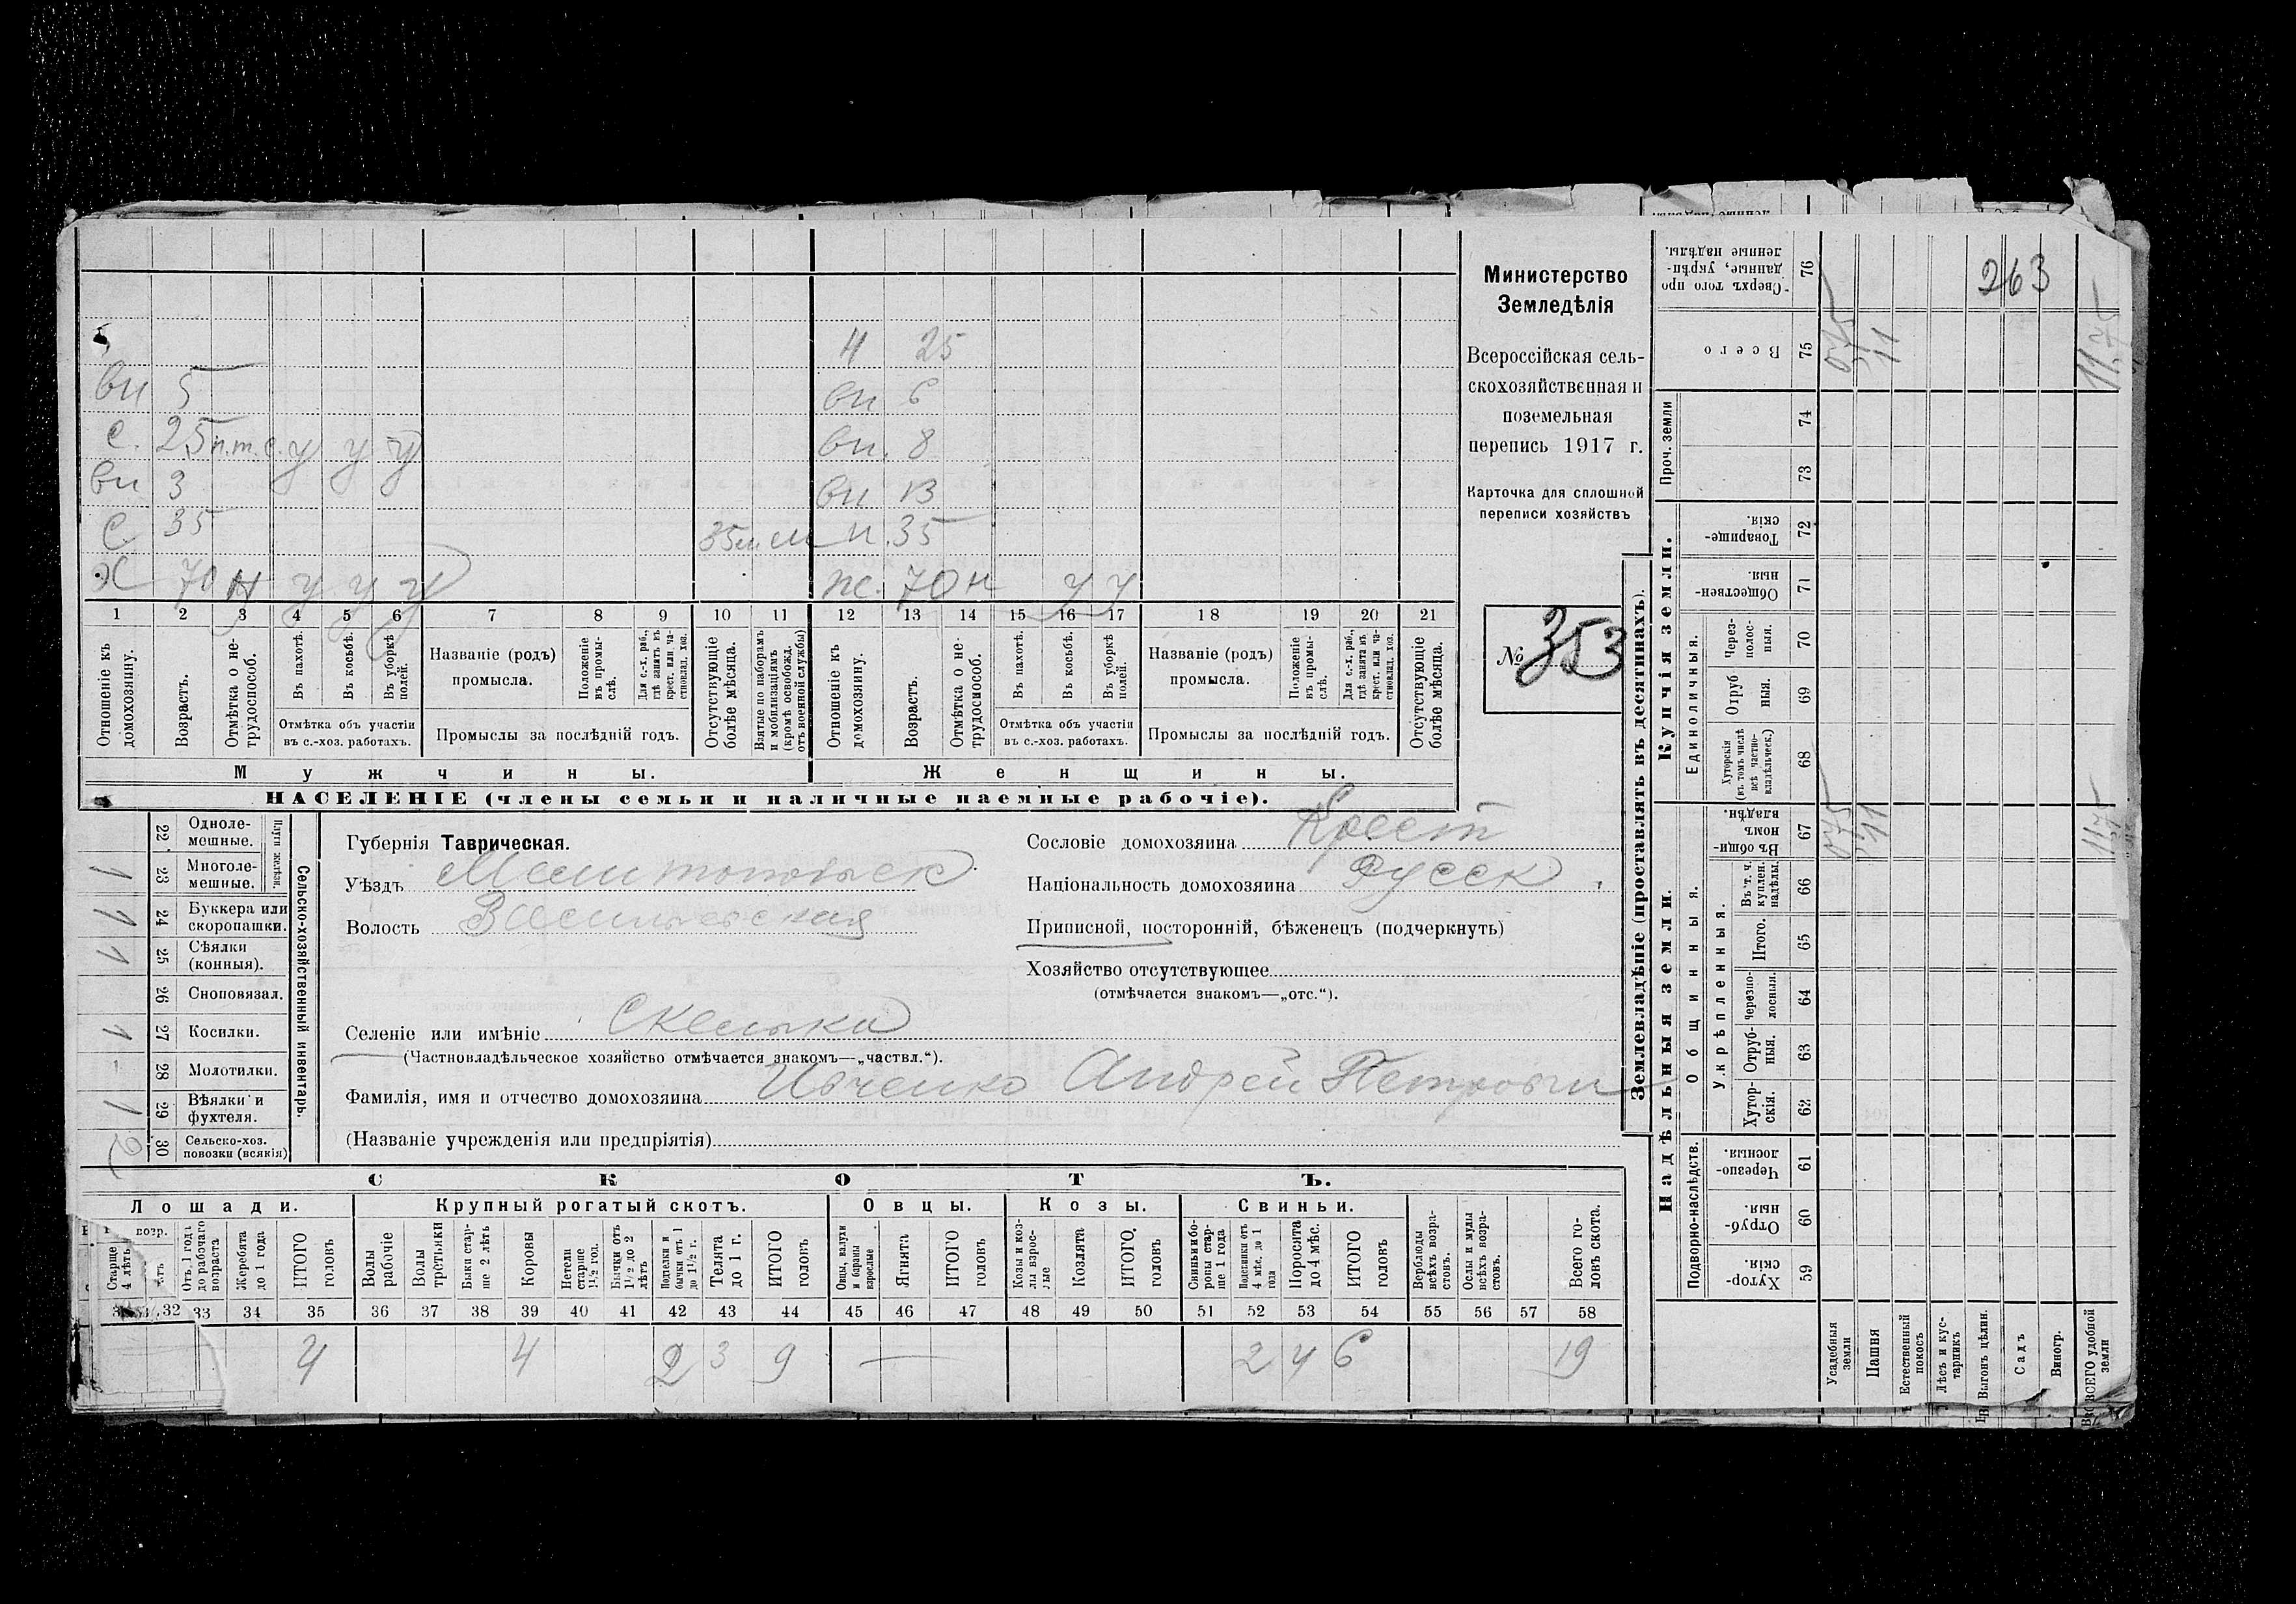 4 25
вн 5 вн 6
с. 25 п.т.с. у у у вн. 8
вн 3 вн 13
с 35 н. 35
х 70 н у у у ж. 70 н у у
1 2 3 4 5 6 7 8 9 10 11 12 13 14 15 16 17 18 19 20 21
Отношеніе къ домохозяину.
Возрастъ.
Отмѣтка о не-трудоспособ.
Въ пахотѣ.
Въ косьбѣ.
Въ уборкѣ полей.
Отмѣтка объ участіи
въ с.-хоз. работахъ.
Названіе (родъ)
промысла.
Положеніе въ промы-слѣ.
Для с.-х. раб., гдѣ занятъ въ крест. или ча-стновлад. хоз.
Промыслы за послѣдній годъ.
Отсутствующіе болѣе мѣсяца.
Взятые по наборамъ и мобилизаціямъ (кромѣ освобожд. отъ военной службы)
Отношеніе къ домохозяину.
Возрастъ.
Отмѣтка о не-трудоспособ.
Въ пахотѣ.
Въ косьбѣ.
Въ уборкѣ полей.
Отмѣтка объ участіи
въ с.-хоз. работахъ.
Названіе (родъ)
промысла.
Положеніе въ промы-слѣ.
Для с.-х. раб., гдѣ занята въ крест. или ча-стновлад. хоз.
Промыслы за послѣдній годъ.
Отсутствующіе болѣе мѣсяца.
Мужчины. Женщины.
НАСЕЛЕНІЕ (члены семьи и наличные наемные рабочіе).
Министерство
Земледѣлія
Всероссійская сель-
скохозяйственная и
поземельная
перепись 1917 г.
Карточка для сплошной
переписи хозяйствъ
№ 353
Сельско-хозяйственный инвентарь.
Плуги желѣзн.
22 Одноле-мешные.
1 23 Многоле-мешные.
1 24 Буккера или скоропашки.
1 25 Сѣялки (конныя).
26 Сноповязал.
1 27 Косилки.
- 28 Молотилки.
1 29 Вѣялки и фухтеля.
2 30 Сельско-хоз. повозки (всякія)
Губернія Таврическая.
Уѣздъ Мелитопольск.
Волость Васильевская
Сословіе домохозяина Крест
Національность домохозяина Русск.
Приписной, посторонній, бѣженецъ (подчеркнуть)
Хозяйство отсутствующее
(отмѣчается знакомъ—„отс.“).
Селеніе или имѣніе Скельки
(Частновладѣльческое хозяйство отмѣчается знакомъ—„частвл.“).
Фамилія, имя и отчество домохозяина Ивченко Андрей Петрович
(Названіе учрежденія или предпріятія)
СКОТЪ.
Лошади. Крупный рогатый скотъ. Овцы. Козы. Свиньи.
возр.
Старше 4 лѣтъ
Отъ 1 года до рабочаго возраста
Жеребята до 1 года
ИТОГО головъ
Волы рабочіе
Волы третьяки
Быки стар-ше 2 лѣтъ
Коровы
Нетели старше 1½ год.
Бычки отъ 1½ до 2 лѣтъ
Подтелки и бычки отъ 1 до 1½ г.
Телята до 1 г.
ИТОГО головъ
Овцы, валухи и бараны взрослые
Ягнята
ИТОГО головъ
Козы и коз-лы взрос-лые
Козлята
ИТОГО головъ
Свиньи и бо-ровы стар-ше 1 года
Подсвинки отъ 4 мѣс. до 1 года
Поросята до 4 мѣс.
ИТОГО головъ
Верблюды всѣхъ возра-стовъ.
Ослы и мулы всѣхъ возра-стовъ.
Всего го-ловъ скота.
32 33 34 35 36 37 38 39 40 41 42 43 44 45 46 47 48 49 50 51 52 53 54 55 56 57 58
4 4 2 3 9 — 2 4 6 19
Землевладѣніе (проставлять въ десятинахъ).
Надѣльныя земли. Купчія земли.
Проч. земли
Подворно-наслѣдств.
Общинныя.
Укрѣпленныя.
Единоличныя.
Сверхъ того про-данные, укрѣп-ленные надѣлы. 76
263
Всего 75 075 11 11.75
74
73
Товарище-скія. 72
Обществен-ныя. 71
Через-полос-ныя. 70
Отруб-ныя. 69
Хуторскія (въ томъ числѣ всѣ частно-владѣльческ.) 68
Въ общин-номъ владѣн. 67 075 11 1175
Въ т. ч. куплен. надѣлы. 66
Итого. 65
Черезпо-лосныя. 64
Отруб-ныя. 63
Хутор-скія. 62
Черезпо-лосныя. 61
Отруб-ныя. 60
Хутор-скія. 59
Усадебныя земли
Пашня
Естественный покосъ
Лѣсъ и кус-тарникъ
Выгонъ цѣлин.
Садъ
Виногр.
ВСЕГО удобной земли